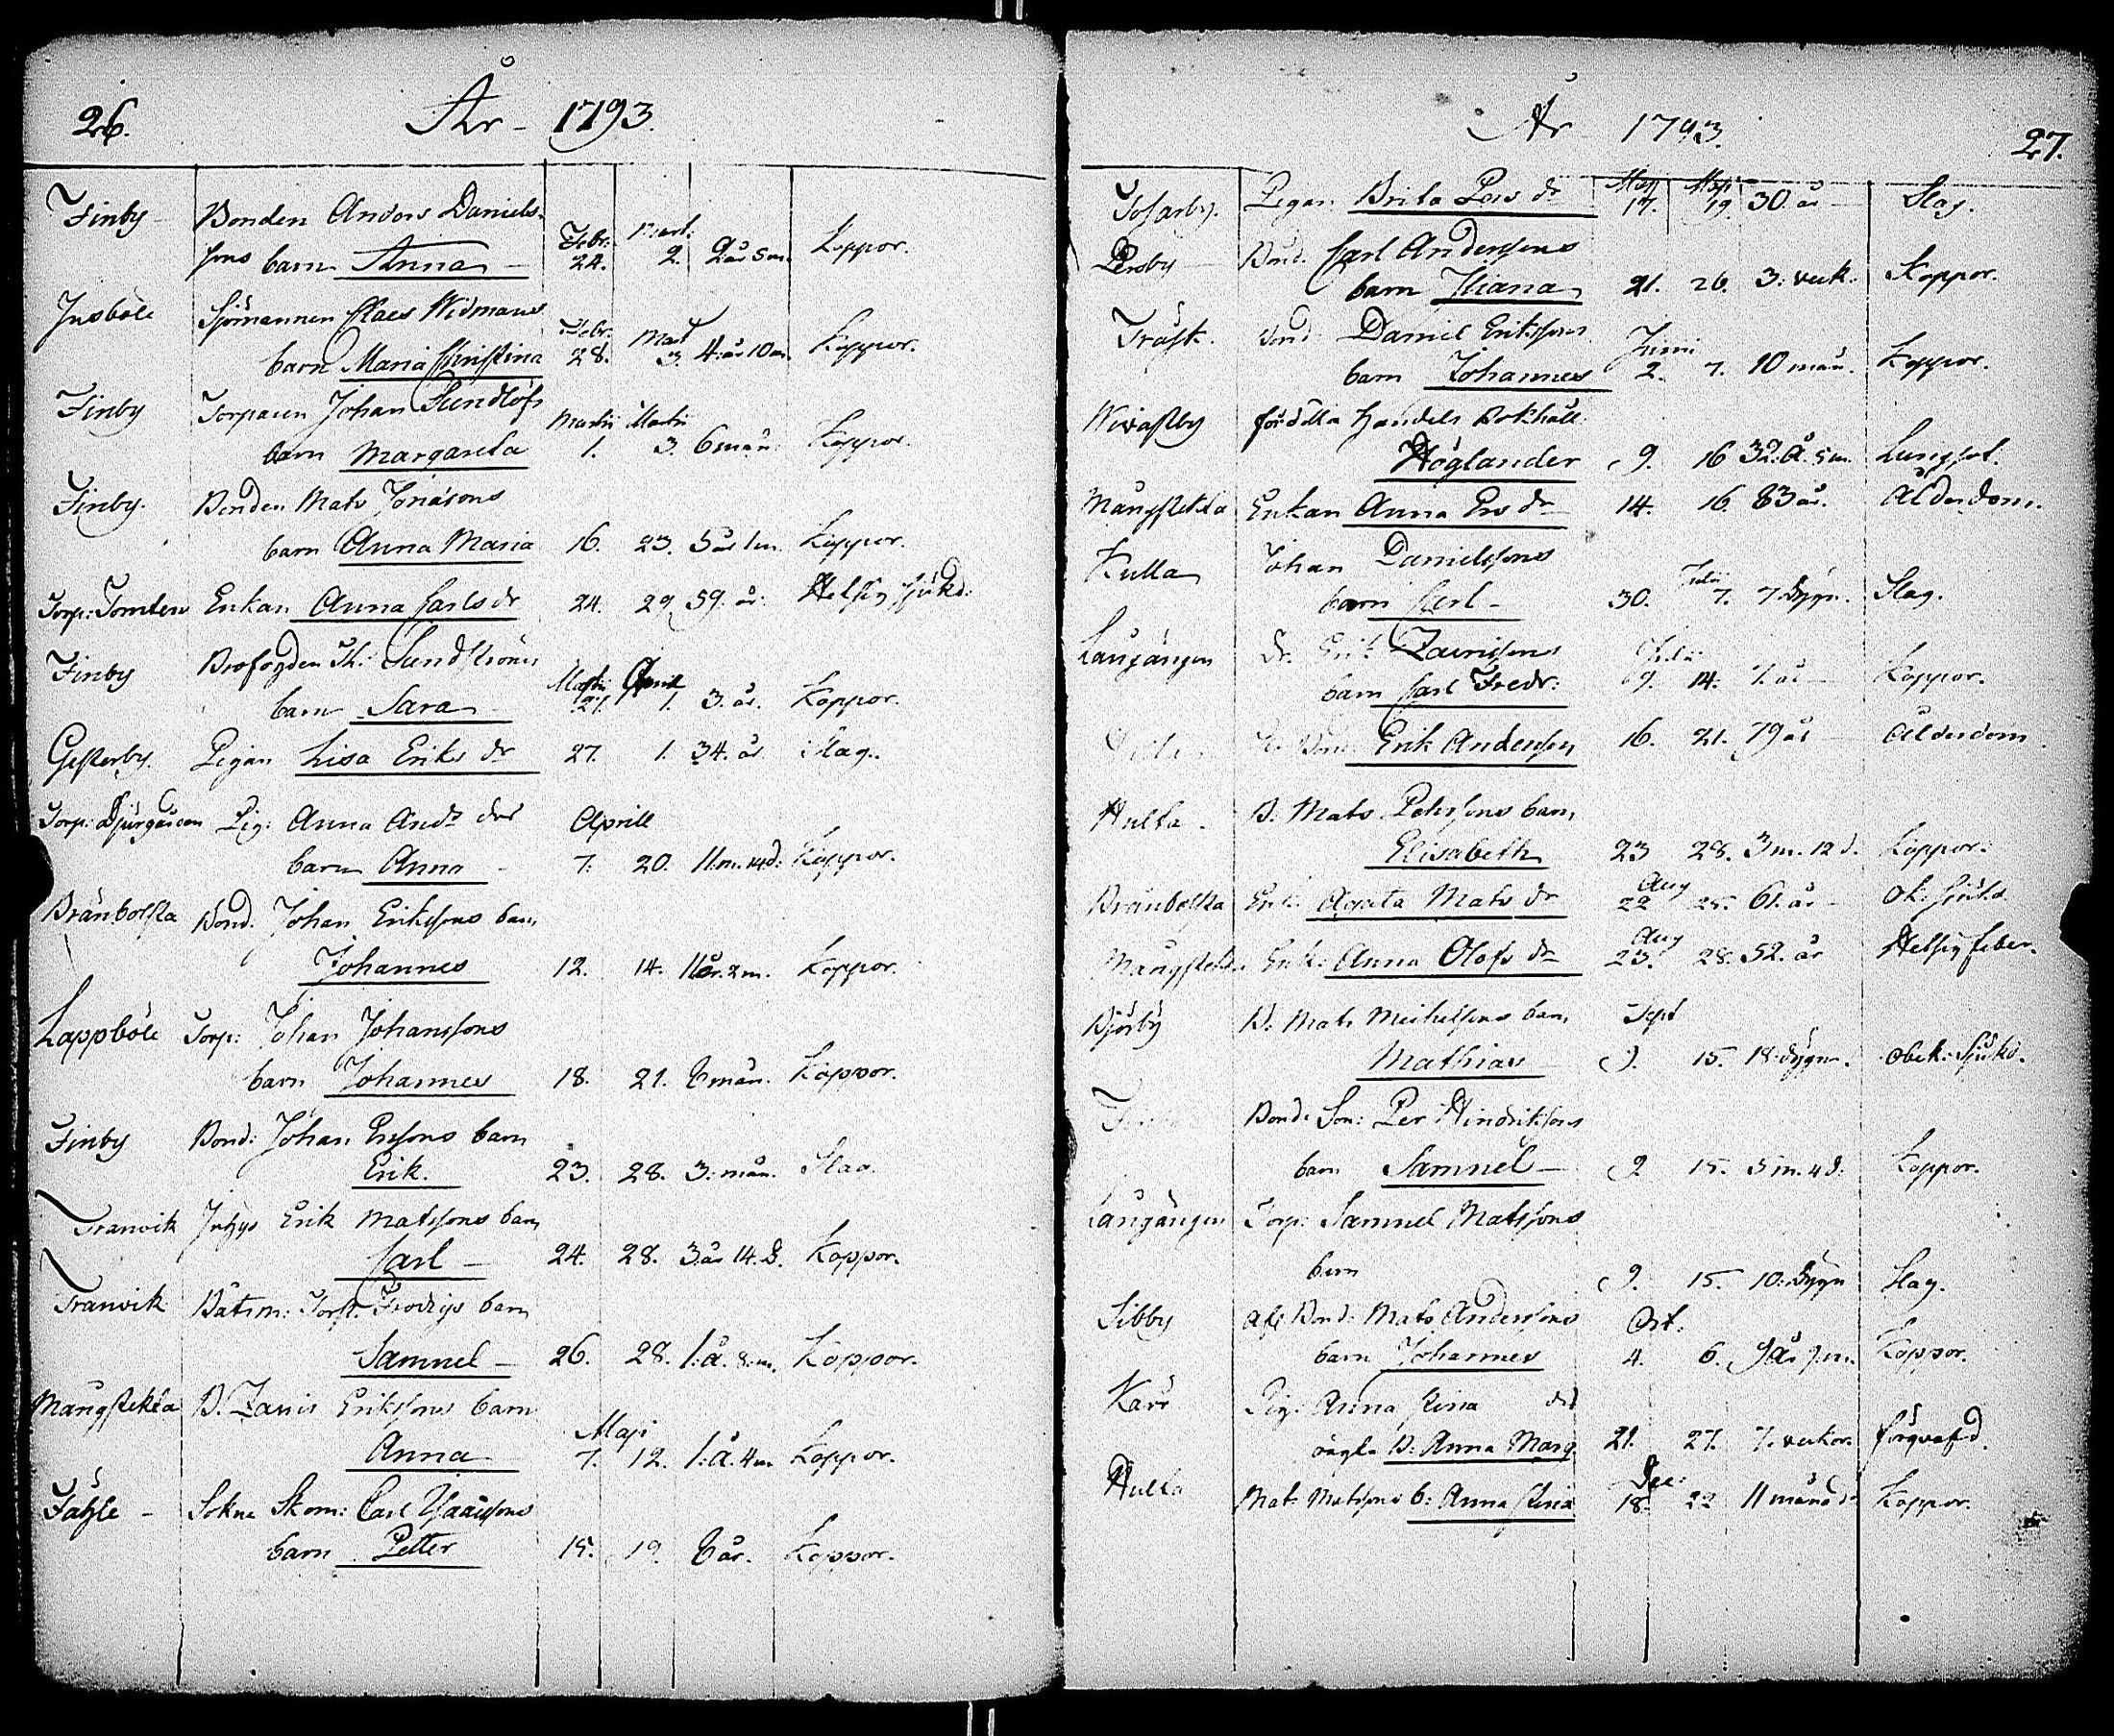 26.
År - 1793.
Finby Bonden Anders Daniels-
sons barn Anna Febr: 24. Mart: 2. 2 år 5 m. Koppor.
Insböle Sjömannen Claes Widmans
barn Maria Christina Febr: 28. Mart 3. 4: år 10 m. Koppor.
Finby Torparen Johan Sundlöfs
barn Margareta Martii 1. Martii 3. 6 mån. Koppor.
Finby. Bonden Mats Jonasons
barn Anna Maria 16. 23. 5 år 1 m. Koppor.
Torp: Tomten Enkan Anna Carls dr 24. 29. 59. år. Helsig sjukd:
Finby Brofogden Sundströms
barn Sara Martii 27. April 1. 3. år. Koppor.
Gesterby. Pigan Lisa Eriks dr 27. 1. 34. år Slag.
Torp: Djurgården Pig: Anna And: drs Aprill
barn Anna 7. 20. 11. m. 14 d: Koppor.
Bränbolsta Bond. Johan Erikssons barn
Johannes 12. 14. 11 år. 2 m. Koppor.
Lappböle Torp: Johan Johanssons
barn Johannes 18. 21. 6 mån. Koppor.
Finby Bond: Johan Erssons barn
Erik. 23. 28. 3: mån. Slag.
Tranvik Inhys Erik Matssons barn
Carl 24. 28. 3 år 14. d. Koppor.
Tranvik Båtsm: barn
Samuel 26. 28. 1. å. 8. m. Koppor.
Mångstekta B. Zanris Erikssons barn
Anna Maji 7. 12. 1: å. 4 m Koppor.
Sokne Skom: Carl
barn Petter 15. 19. 6 år. Koppor.
År 1793.
27.
Tosarby. Pigan Brita Pers dr Maji 17. Maji 19. 30. år Slag.
Persby Bond. Carl Anderssons
barn 21. 26. 3: veck: Koppor.
Träsk. Bond: Daniel Erikssons
barn Johannes Junii 2. 7. 10 mån. Koppor.
Handels Bokhåll.
Höglander 9. 16 32. å. 5 m. Lungsot.
Mångstekta Enkan Anna Ers dr 14. 16. 83 år. Ålderdom.
Kulla Johan Danielssons
barn Carl 30. Julii 7. 7 dygn. Slag.
Långängen Dr. Erik Zanrissons
barn Carl Fredr: Julii 9. 14. 7. år Koppor.
Erik Andersson 16. 21. 79 år Ålderdom.
Hulta. B. Mats Pehrssons barn
Elisabeth 23 28. 3 m. 12 d. Koppor.
Bränbolsta Enk: Agata Mats dr Aug 22 25. 61. år Ok. sjukd.
Mångstekt. Enk. Anna Olofs dr Aug 23. 28. 52. år Helsig feber.
Björby B. Mats Michelssons barn Sept
Mathias 9. 15. 18. dygn. Obek: Sjukd.
Bond: Son: Per Hindrikssons
barn Samuel 9 15. 5 m. 4 d. Koppor.
Långängen Torp: Samuel Matssons
barn 9. 15. 10. dygn Slag.
Sibby Afl Bond: Mats Anderssons Oct.
barn Johannes 4. 6. Koppor.
Kärr Pig: Anna Stina drs
oägta B: Anna Marg. 21. 27. 7. veckor. förqvafd.
Hulta Mats Matssons b: Anna Stina Dec: 18. 22 11 månad. Koppor.